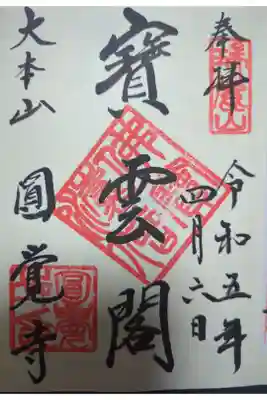 奉拝
令和五年
四月六日
寶雲閣
大本山
圓覚寺